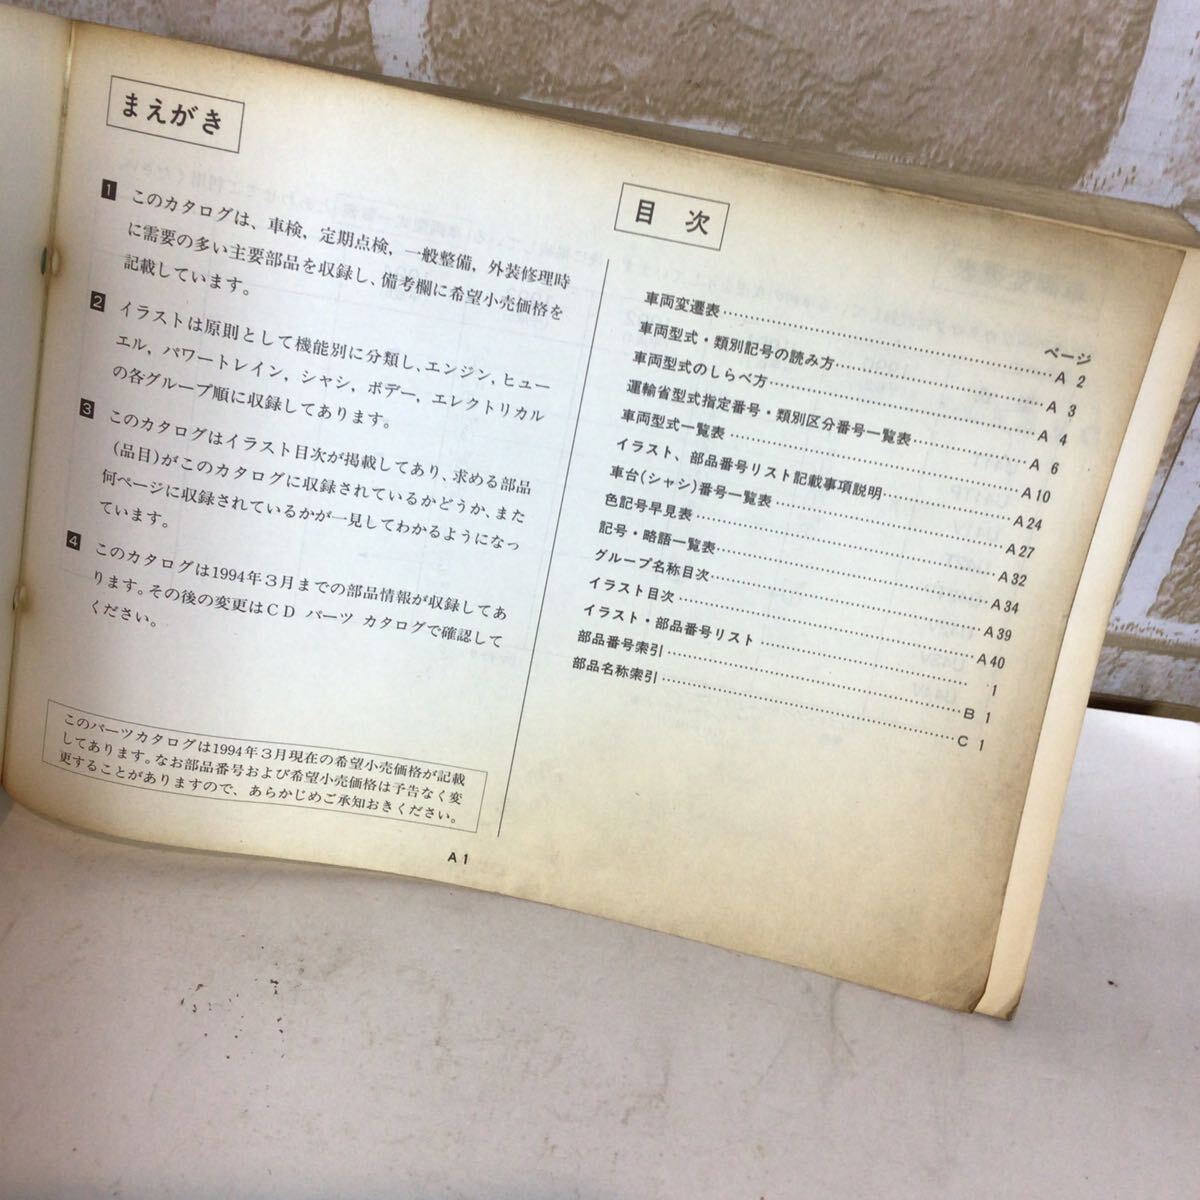 まえがき
1 このカタログは、車検，定期点検，一般整備，外装修理時
に需要の多い主要部品を収録し、備考欄に希望小売価格を
記載しています。
2 イラストは原則として機能別に分類し、エンジン，ヒュー
エル，パワートレイン，シャシ，ボデー，エレクトリカル
の各グループ順に収録してあります。
3 このカタログはイラスト目次が掲載してあり、求める部品
(品目)がこのカタログに収録されているかどうか、また
何ページに収録されているかが一見してわかるようになっ
ています。
4 このカタログは1994年3月までの部品情報が収録してあ
ります。その後の変更はCD パーツ カタログで確認して
ください。
このパーツカタログは1994年3月現在の希望小売価格が記載
してあります。なお部品番号および希望小売価格は予告なく変
更することがありますので、あらかじめご承知おきください。
目 次
ページ
車両変遷表……………………A 2
車両型式・類別記号の読み方……………………A 3
車両型式のしらべ方……………………A 4
運輸省型式指定番号・類別区分番号一覧表……………………A 6
車両型式一覧表……………………A10
イラスト、部品番号リスト記載事項説明……………………A24
車台(シャシ)番号一覧表……………………A27
色記号早見表……………………A32
記号・略語一覧表……………………A34
グループ名称目次……………………A39
イラスト目次……………………A40
イラスト・部品番号リスト…………………… 1
部品番号索引……………………B 1
部品名称索引……………………C 1
A 1